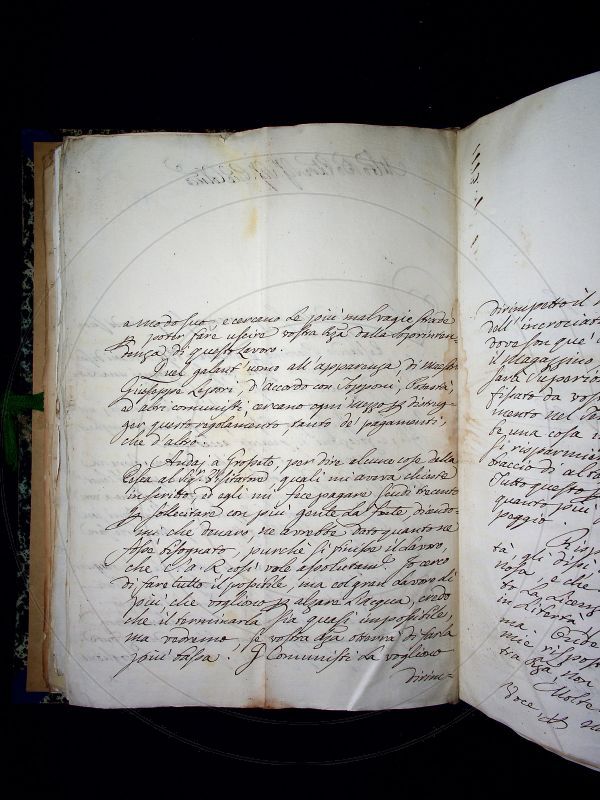 a modo suo, e cercano le più malvagie strade
per poter fare uscire vostra Rza dalla soprinten
denza di questo lavoro.
Quel galant'uomo all'apparenza, di maestro
Giuseppe d'accordo con
ed altri comunisti, cercano ogni mezzo per distrug-
ger questo regolamento, tanto de' pagamenti,
che d'altro.
Andaj a per dire alcune cose dalla
al Sig. quali mi aveva chieste
in scritto, ed egli mi fece pagare scudi trecento
per sollecitare con più gente la fonte, dicendo-
mi che denaro, ne avrebbe dato quanto ne
fosse bisognato, purche si finisse il lavoro,
che C. A. R. così vole assolutamte. Io cerco
di fare tutto il possibile, ma col gran lavoro di
più che vogliono per alzare l'acqua, credo
che il terminarla sia quasi impossibile,
ma vedremo, se vostra Rza otterrà di farla
più bassa. I Comunisti la vogliono
dirim=
dirimpetto il
dell'incrociat
dove son que'
il magazzino
sarà superio
fissato da vos
mento nel
te una cosa
si risparmie
braccio di alt
tutto questo
quanto più
poggio.
tà, gli dissi
nosa, e che
ti la licenz
in libertà
ma.
mie rispos
tra Rza non
Molte
voce